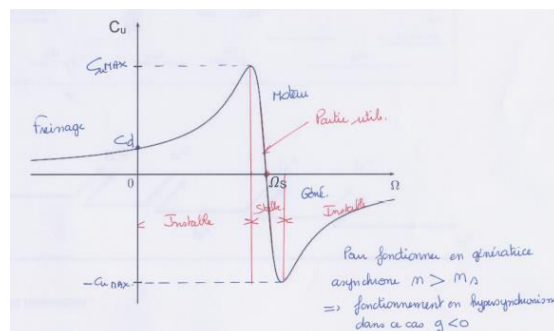 Cu
CuMAX
Moteur
Freinage
Partie utile.
Cd
0
Ωs
Ω
Géné.
Instable
Stable
Instable
-CuMAX
Pour fonctionner en génératrice
asynchrone n > ns
=> fonctionnement en hypersynchronisme
dans ce cas g<0